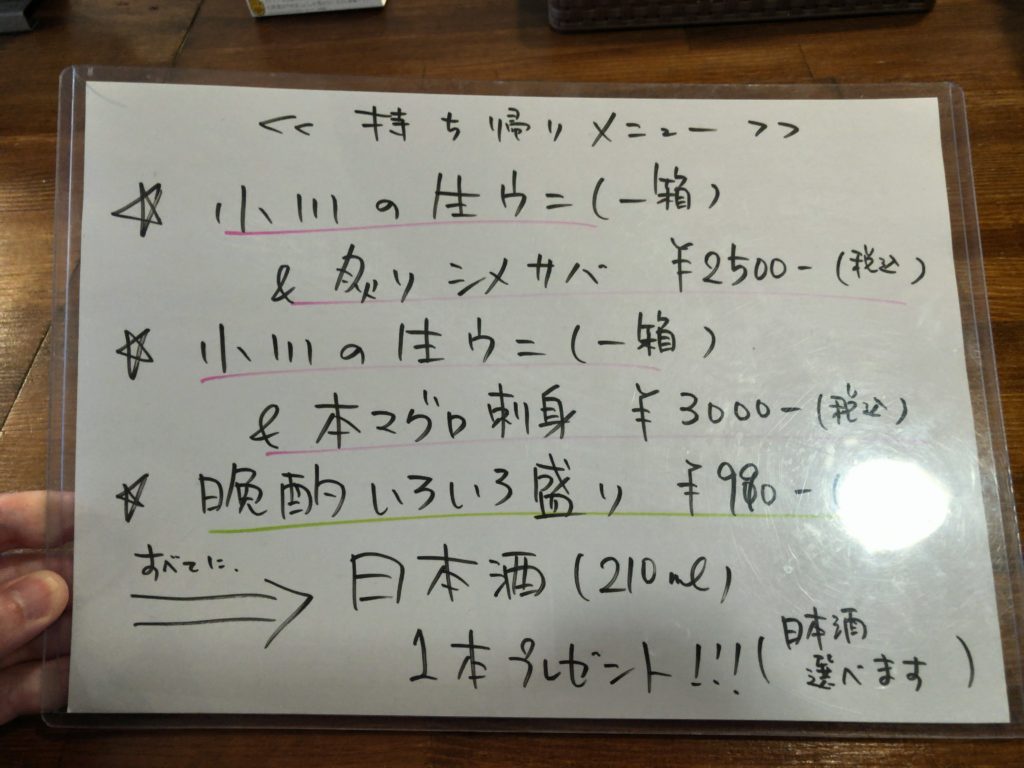 << 持ち帰りメニュー >>
☆ 小川の生ウニ(一箱)
& 炙りシメサバ ¥2500-(税込)
☆ 小川の生ウニ(一箱)
& 本マグロ刺身 ¥3000-(税込)
☆ 晩酌いろいろ盛り ¥980-(
すべてに.
⇒ 日本酒(210ml)
1本プレゼント!!!(日本酒
選べます)